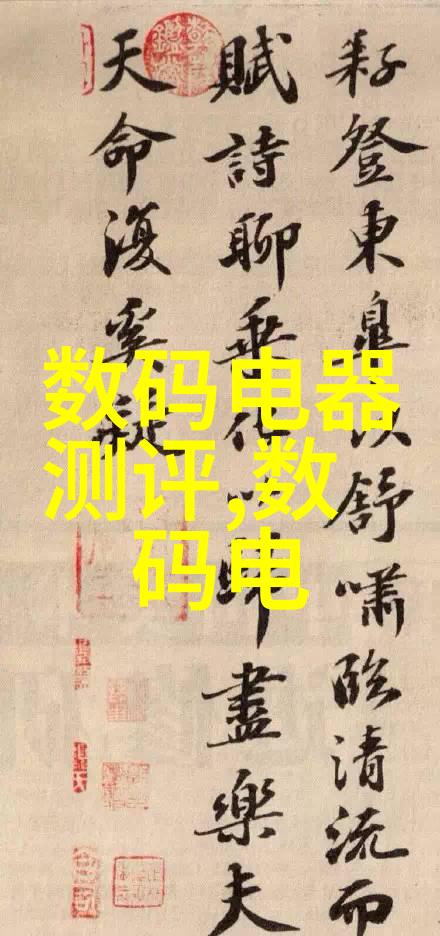 数码电器
测评,数
码电
耔登東皐以舒嘯臨清流而
賦詩聊乗化以歸盡樂夫
天命復奚疑